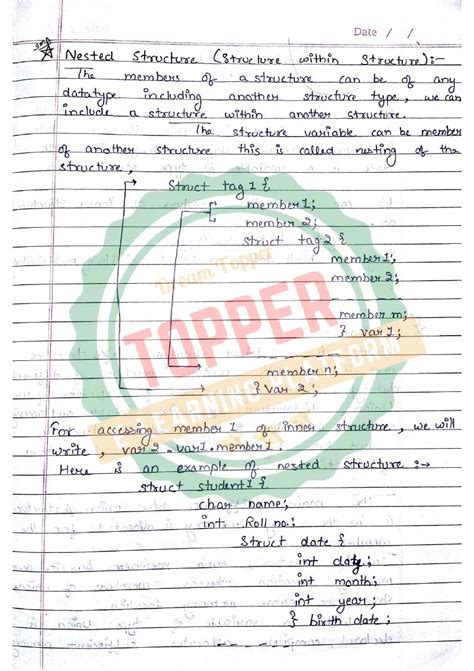 Date / /
Nested Structure (Structure within Structure):-
The members of a structure can be of any
datatype including another structure type, we can
include a structure within another structure.
The structure variable can be member
of another structure this is called nesting of the
structure,
Struct tag 1 {
member 1;
member 2;
Struct tag 2 {
member 1;
member 2;
member m;
} var 1;
member n;
} Var 2;
For accessing member 1 of inner structure, we will
write, var 2 . var 1 . member 1.
Here is an example of nested structure :→
Struct student 1 {
char name;
int Roll no;
Struct date {
int date;
int month;
int year;
} birth date;
Dream Topper
TOPPER